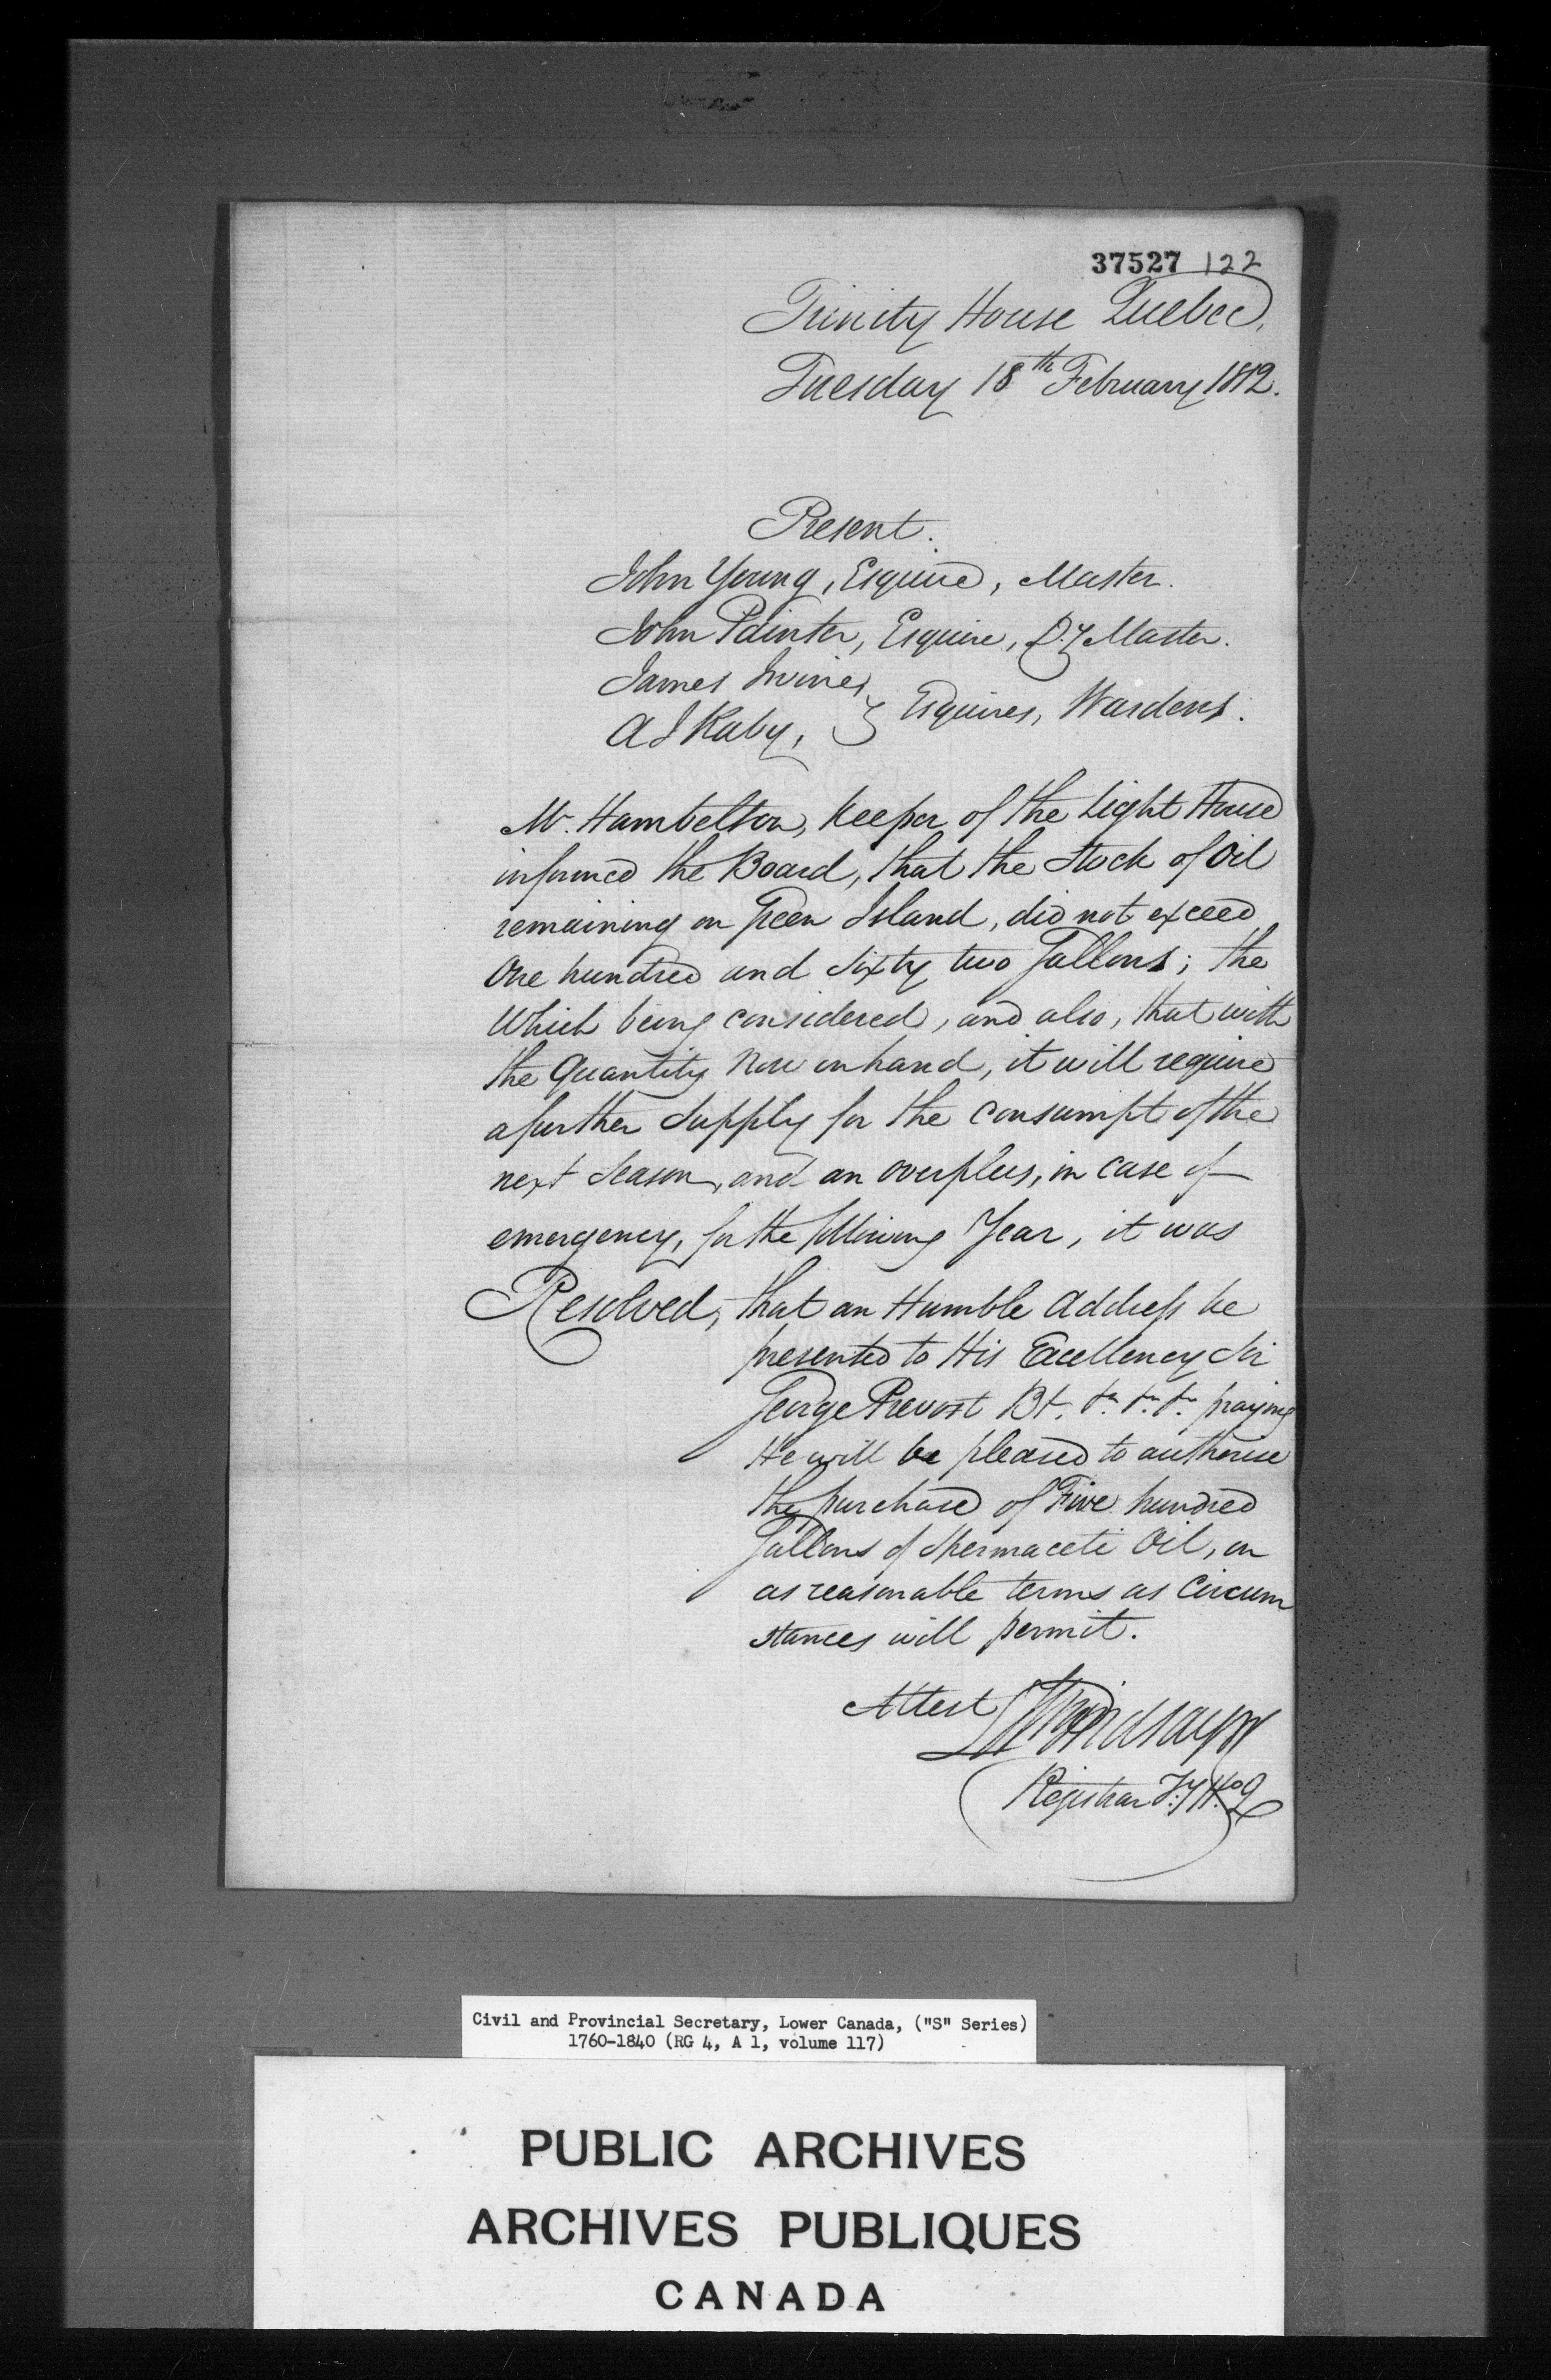 37527 122
Trinity House Quebec,
Tuesday 18th February 1812.
Present.
John Young, Esquire, Master.
John Painter, Esquire, Dy. Master.
James Irvine,
A J Raby, } Esquires, Wardens.
Mr. Hambelton, Keeper of the Light House
informed the Board, that the Stock of Oil
remaining on Green Island, did not exceed
One hundred and Sixty two Gallons; the
Which being considered, and also, that with
the Quantity Now on hand, it will require
a further Supply for the Consumpt of the
next Season, and an overplus, in case of
emergency, for the following Year, it was
Resolved, that an Humble Address be
presented to His Excellency Sir
George Prevost Bt. &c. &c. &c. praying
He will be pleased to authorise
the purchase of Five hundred
Gallons of Spermaceti Oil, on
as reasonable terms as Circum
stances will permit.
Attest Lindsay
Registrar T:y H:o Q
Civil and Provincial Secretary, Lower Canada, ("S" Series)
1760-1840 (RG 4, A 1, volume 117)
PUBLIC ARCHIVES
ARCHIVES PUBLIQUES
CANADA